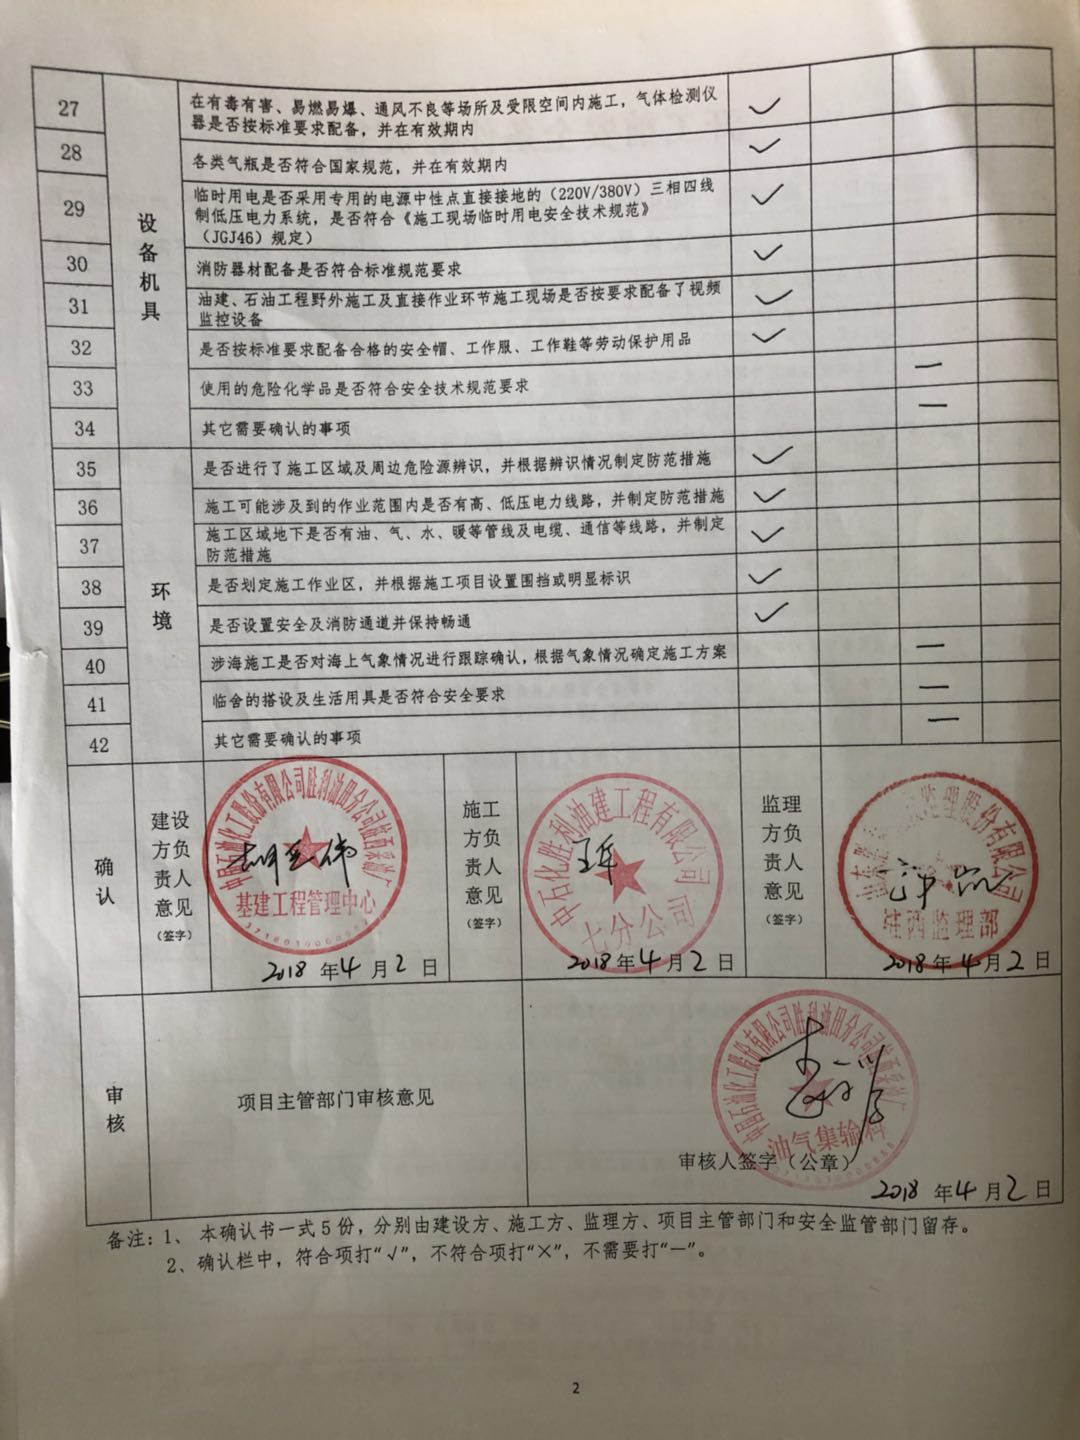 27
在有毒有害、易燃易爆、通风不良等场所及受限空间内施工，气体检测仪
器是否按标准要求配备，并在有效期内
✓
28
各类气瓶是否符合国家规范，并在有效期内
✓
29
临时用电是否采用专用的电源中性点直接接地的（220V/380V）三相四线
制低压电力系统，是否符合《施工现场临时用电安全技术规范》
（JGJ46）规定）
✓
设备机具
30
消防器材配备是否符合标准规范要求
✓
31
油建、石油工程野外施工及直接作业环节施工现场是否按要求配备了视频
监控设备
✓
32
是否按标准要求配备合格的安全帽、工作服、工作鞋等劳动保护用品
✓
33
使用的危险化学品是否符合安全技术规范要求
—
34
其它需要确认的事项
—
35
是否进行了施工区域及周边危险源辨识，并根据辨识情况制定防范措施
✓
36
施工可能涉及到的作业范围内是否有高、低压电力线路，并制定防范措施
✓
37
施工区域地下是否有油、气、水、暖等管线及电缆、通信等线路，并制定
防范措施
✓
环境
38
是否划定施工作业区，并根据施工项目设置围挡或明显标识
✓
39
是否设置安全及消防通道并保持畅通
✓
40
涉海施工是否对海上气象情况进行跟踪确认，根据气象情况确定施工方案
—
41
临舍的搭设及生活用具是否符合安全要求
—
42
其它需要确认的事项
—
确认
建设
方负
责人
意见
（签字）
基建工程管理中心
2018 年 4 月 2 日
施工
方负
责人
意见
（签字）
中石化胜利油建工程有限公司
七分公司
2018 年 4 月 2 日
监理
方负
责人
意见
（签字）
监理部
2018 年 4 月 2 日
审核
项目主管部门审核意见
油气集输科
审核人签字（公章）
2018 年 4 月 2 日
备注：1、 本确认书一式 5 份，分别由建设方、施工方、监理方、项目主管部门和安全监管部门留存。
2、确认栏中，符合项打“√”，不符合项打“×”，不需要打“—”。
2